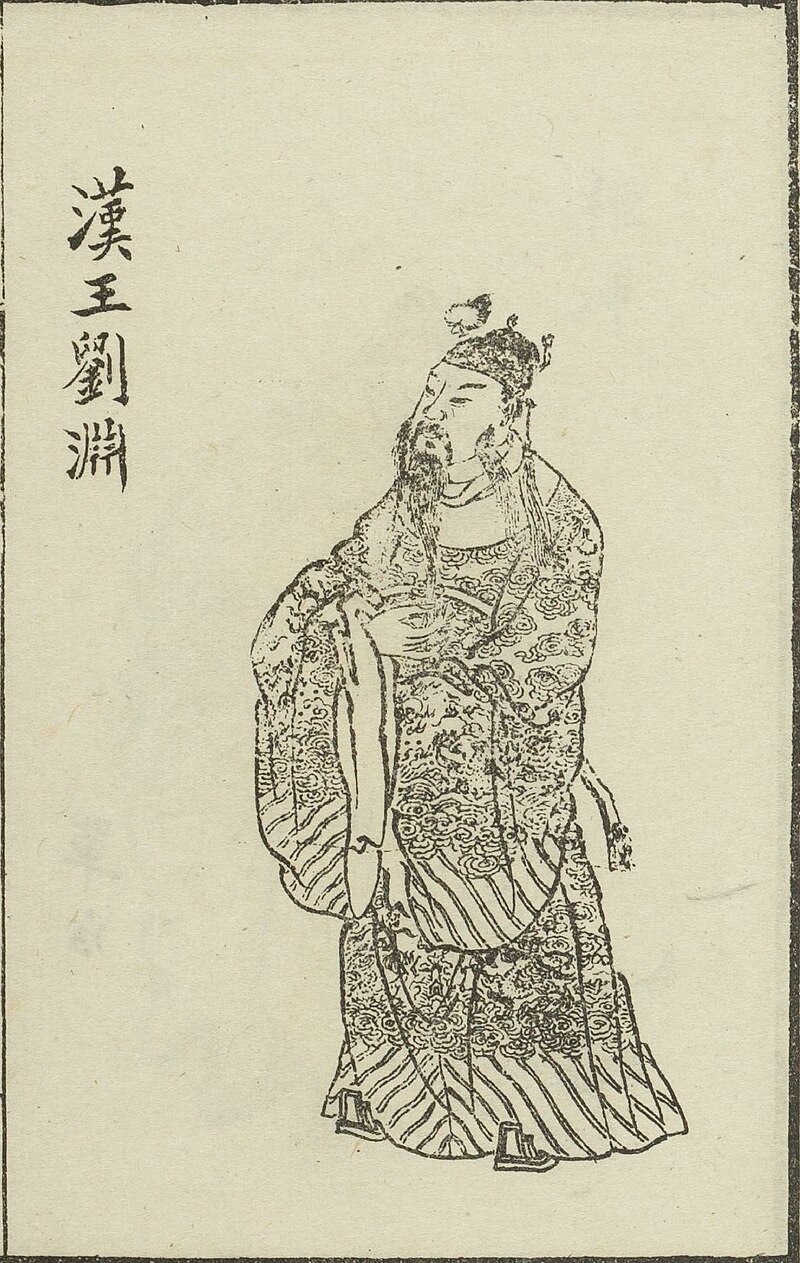 漢王劉淵